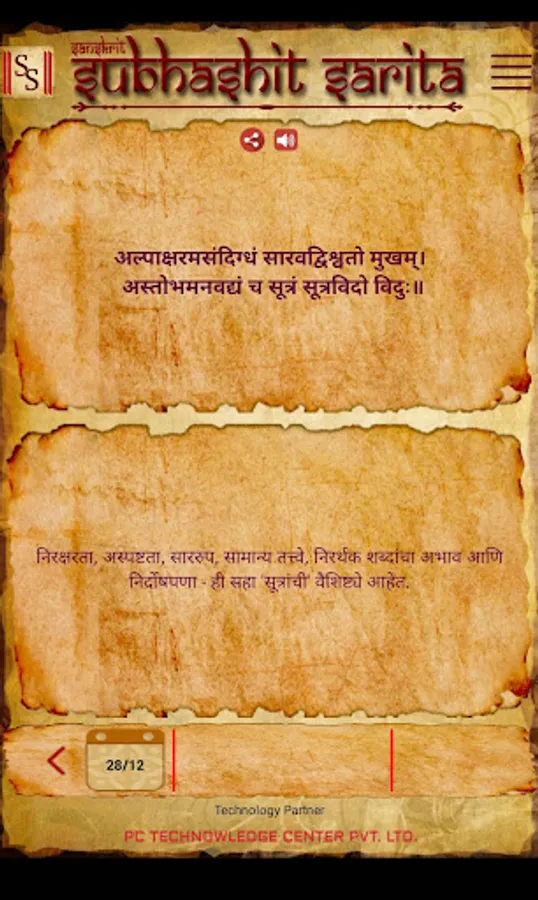 SS
sanskrit
subhashit sarita
अल्पाक्षरमसंदिग्धं सारवद्विश्वतो मुखम्।
अस्तोभमनवद्यं च सूत्रं सूत्रविदो विदुः॥
निरक्षरता, अस्पष्टता, साररुप, सामान्य तत्त्वे, निरर्थक शब्दांचा अभाव आणि
निर्दोषपणा - ही सहा 'सूत्रांची' वैशिष्ट्ये आहेत.
28/12
Technology Partner
PC TECHNOWLEDGE CENTER PVT. LTD.